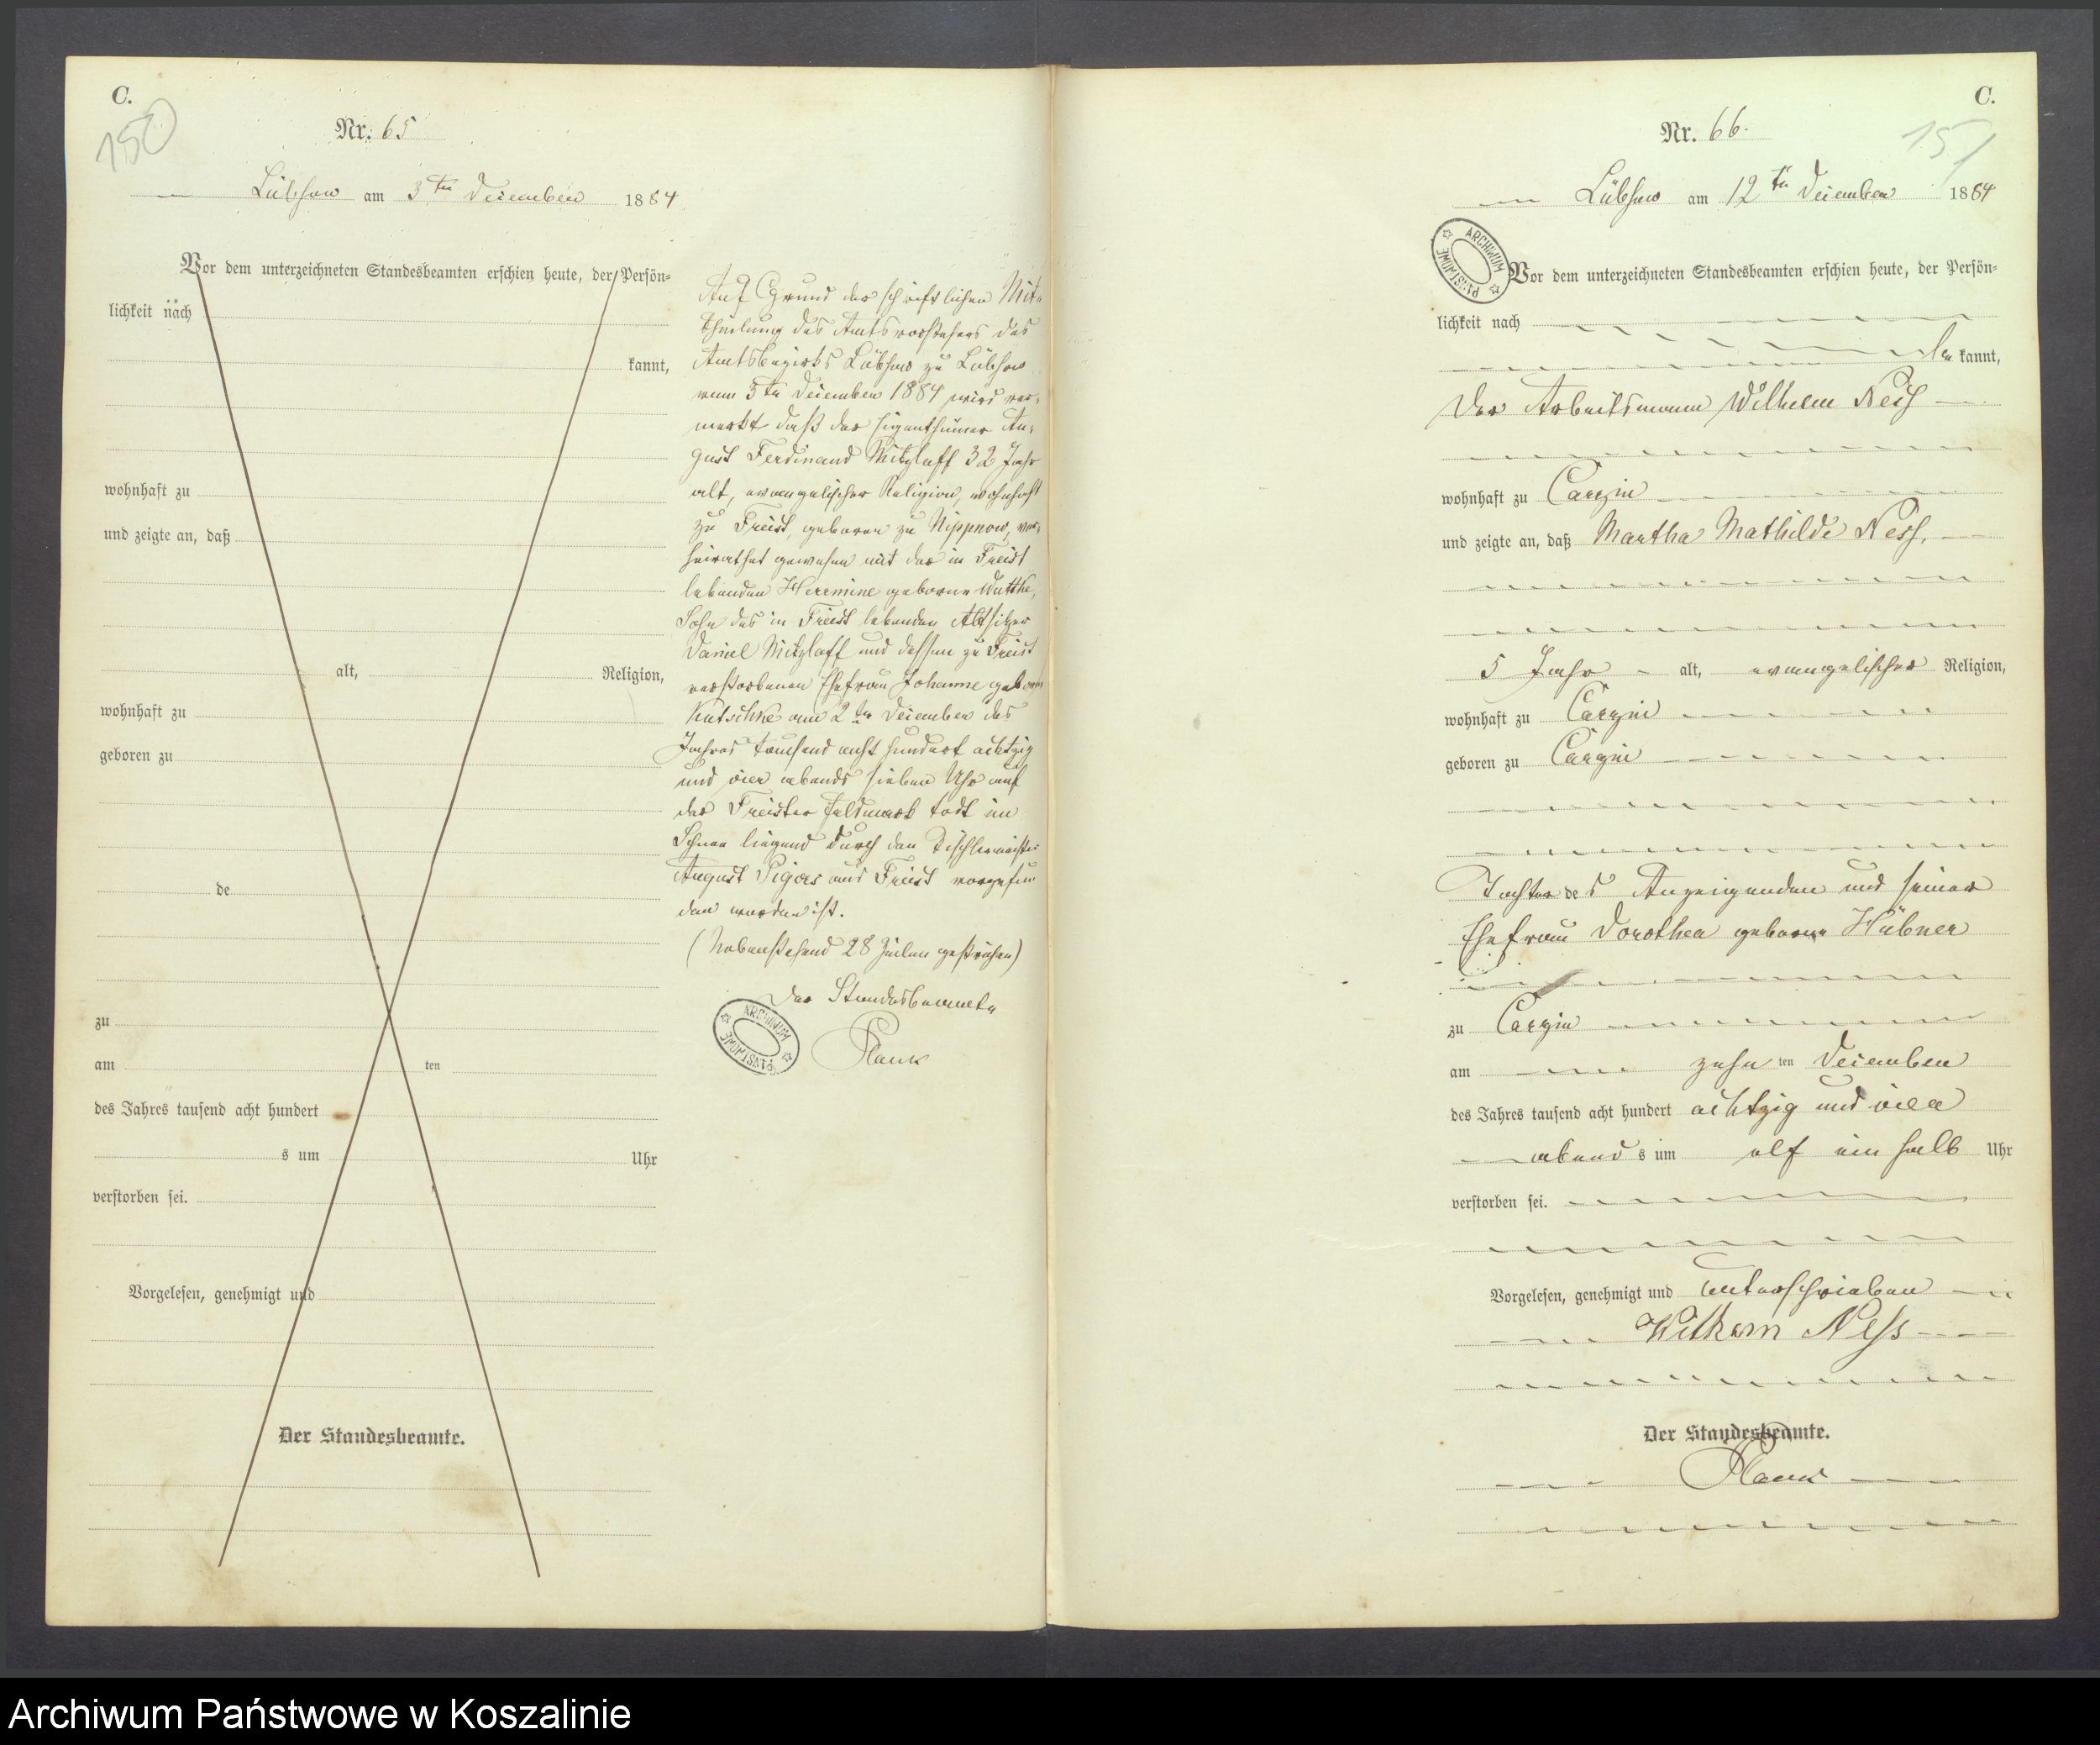 C.
150
Nr. 65
Lübsow am 3ten December 1884
Vor dem unterzeichneten Standesbeamten erschien heute, der Persön-
lichkeit nach
kannt,
wohnhaft zu
und zeigte an, daß
alt, Religion,
wohnhaft zu
geboren zu
de
zu
am ten
des Jahres tausend acht hundert
s um Uhr
verstorben sei.
Vorgelesen, genehmigt und
Der Standesbeamte.
Auf Grund der schriftlichen Mit-
theilung des Amtsvorstehers des
Amtsbezirks Lübsow zu Lübsow
vom 3ten December 1884 wird ver-
merkt daß der Eigenthümer Au-
gust Ferdinand Mitzlaff 32 Jahr
alt, evangelischer Religion, wohnhaft
zu Freist, geboren zu Nippnow, ver-
heirathet gewesen mit der in Freist
lebenden Hermine geborne Wutthe,
Sohn des in Freist lebenden Altsitzer
Daniel Mitzlaff und dessen zu Freist
verstorbenen Ehefrau Johanne geborne
Kutschke am 2ten December des
Jahres tausend acht hundert achtzig
und vier abends sieben Uhr auf
der Freister Feldmark todt im
Schnee liegend durch den Tischlermeister
August Pigors aus Freist vorgefun
den worden ist.
(Nebenstehend 28 Zeilen gestrichen)
Der Standesbeamte
Planck
ARCHIWUM PAŃSTWOWE
C.
151
Nr. 66.
Lübsow am 12ten December 1884
ARCHIWUM PAŃSTWOWE
Vor dem unterzeichneten Standesbeamten erschien heute, der Persön-
lichkeit nach
be kannt,
der Arbeitsmann Wilhelm Neß
wohnhaft zu Carzin
und zeigte an, daß Martha Mathilde Neß,
5 Jahr alt, evangelischer Religion,
wohnhaft zu Carzin
geboren zu Carzin
Tochter des Anzeigenden und seiner
Ehefrau Dorothea geborne Hübner
zu Carzin
am zehn ten December
des Jahres tausend acht hundert achtzig und vier
abend s um elf ein halb Uhr
verstorben sei.
Vorgelesen, genehmigt und unterschrieben
Wilhem Neß
Der Standesbeamte.
Planck
Archiwum Państwowe w Koszalinie